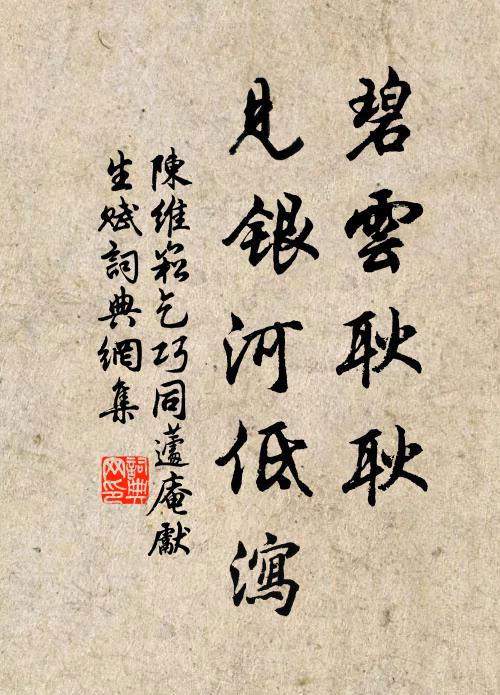 碧雲耿耿
見銀河低瀉
陳維崧乞巧同蘧庵獻
生賦詞典網集
詞典
网印